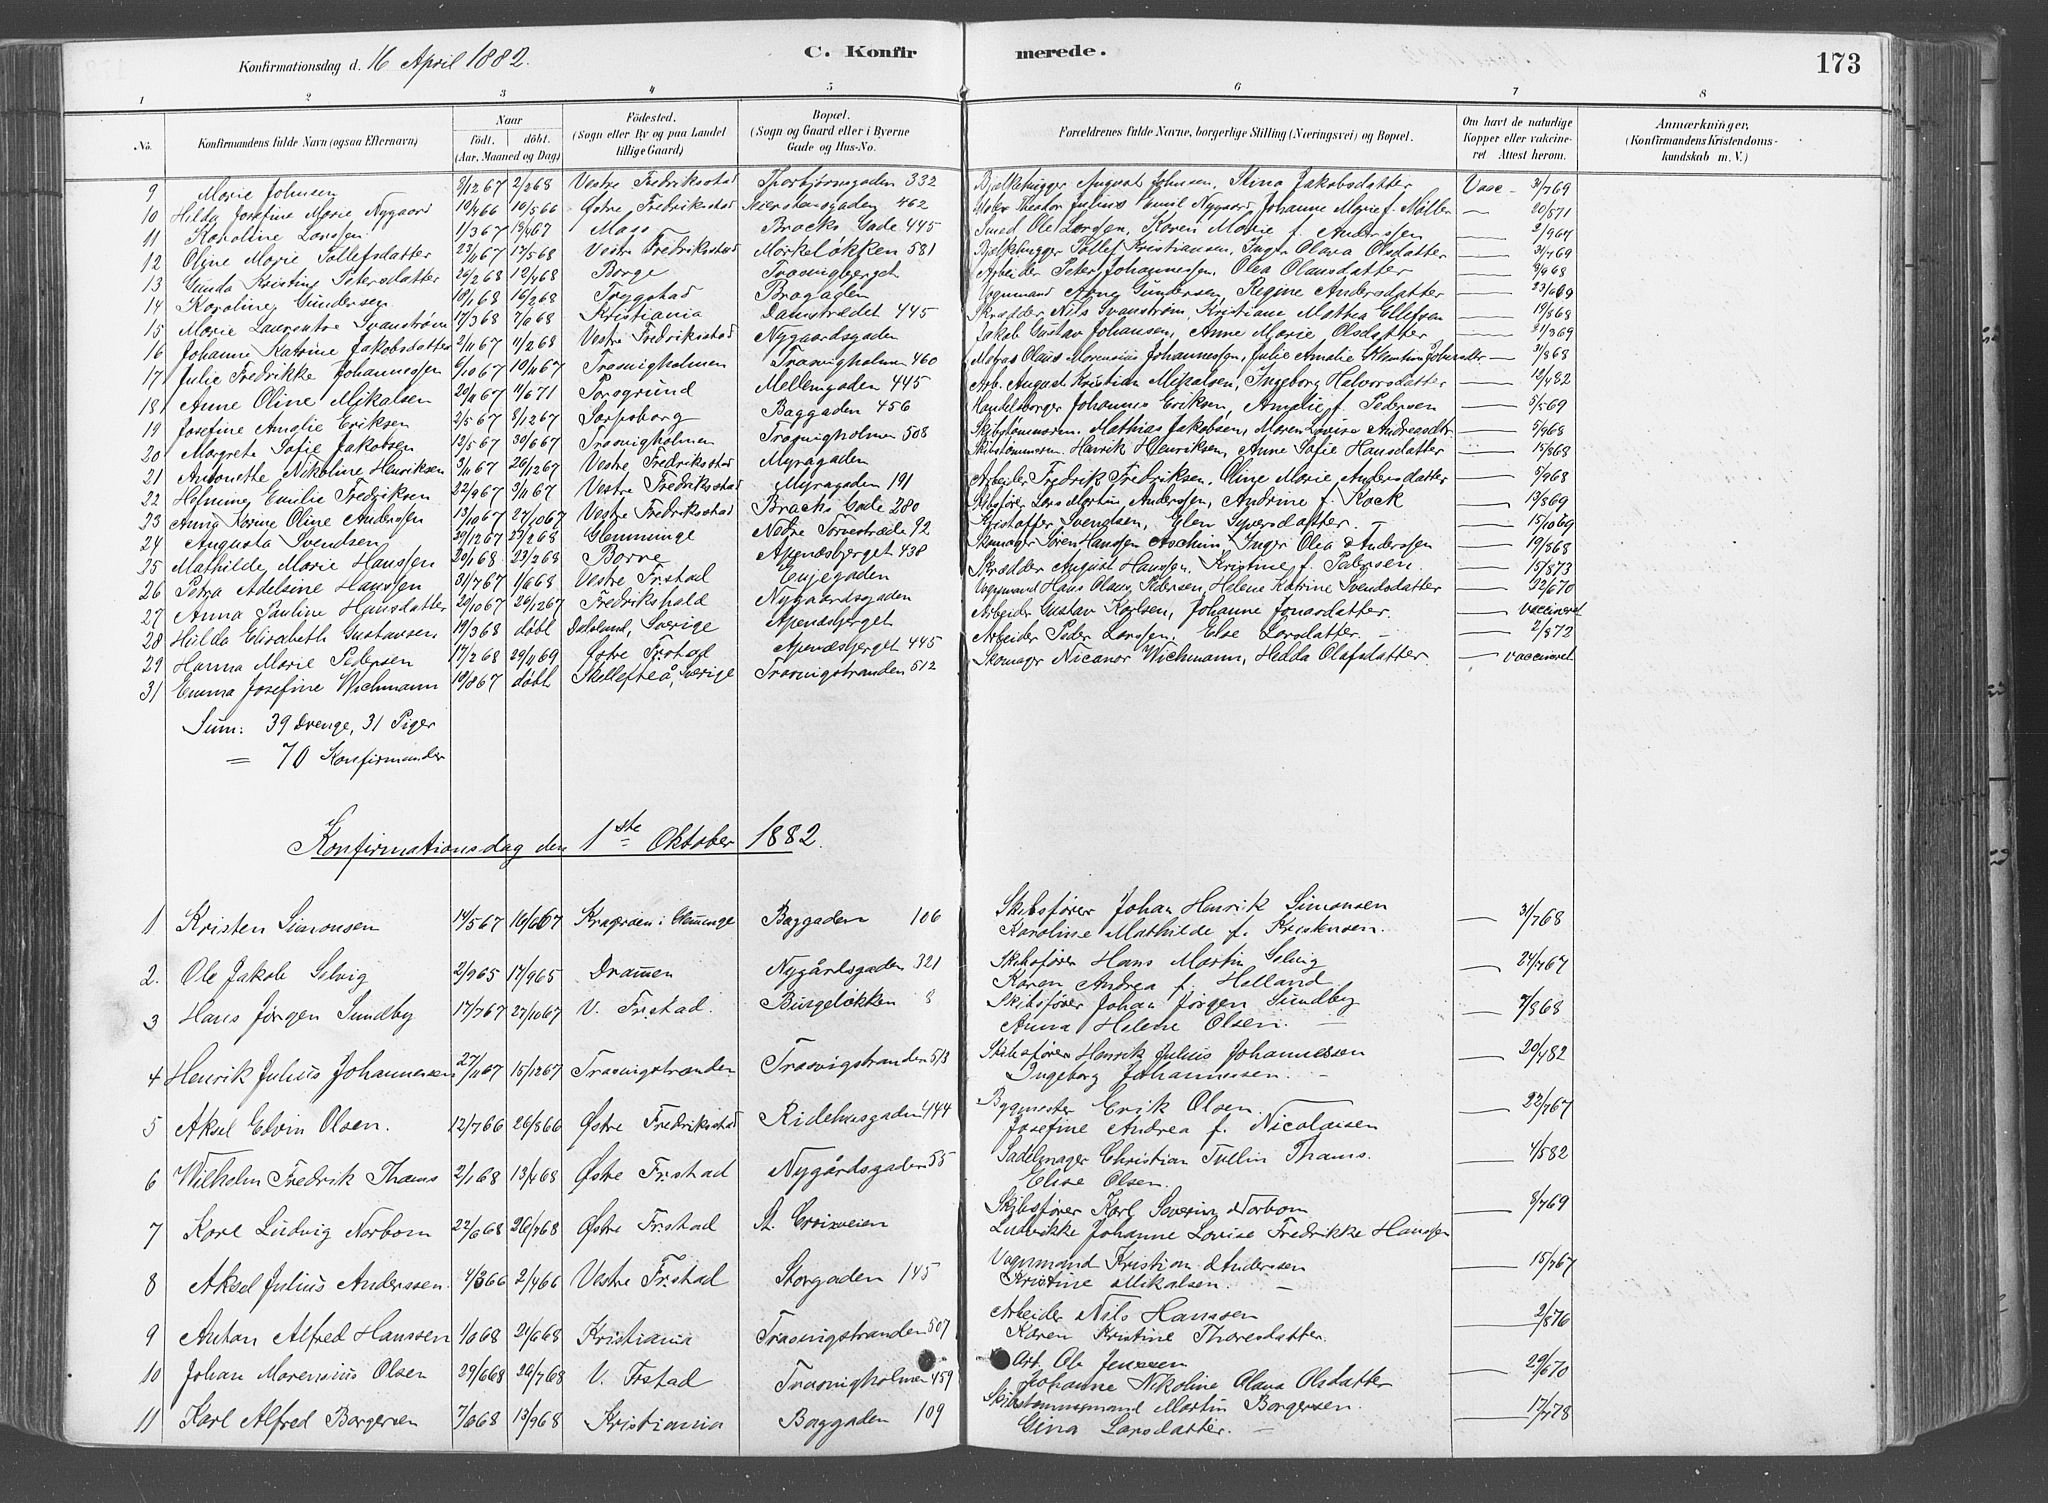 Konfirmationsdag d. 16 April 1882. C. Konfirmerede. 173
1 2 3 4 5 6 7 8
No. Konfirmandens fulde Navn (ogsaa Efternavn) Naar født. døbt. (Aar, Maaned og Dag) Fødested. (Sogn eller By og paa Landet tillige Gaard) Bopæl. (Sogn og Gaard eller i Byerne Gade og Hus-No. Forældrenes fulde Navne, borgerlige Stilling (Næringsvei) og Bopæl. Om havt de naturlige Kopper eller vakcineret Attest herom. Anmærkninger. (Konfirmandens Kristendomskundskab m. V.)
9 Marie Johnsen 9/12 67 2/2 68 Vestre Fredriksstad Thorbjørnsgaden 332 Bjelkehugger August Johnsen, Stina Jakobsdatter Vacc — 31/7 69
10 Hilda Josefine Marie Nygaard 10/4 66 10/5 66 Østre Fredriksstad 462 Theodor Julius Emil Nygaard, Johanne Marie f. Møller — 20/5 71
11 Karoline Larssen 1/3 67 19/4 67 Moss Bracks Gade 445 Smed Ole Larssen, Karen Marie f. Anderssen —
12 Oline Marie Tollefsdatter 23/11 67 17/5 68 Vestre Fredriksstad Mørkeløkken 581 Bjelkehugger Tollef Kristiansen, Inger Olava Olsdatter — 31/7 69
13 Gunda Kristine Petersdatter 26/2 68 12/4 68 Borge Trosvigberget Arbeider Peter Johannessen, Olea Olausdatter — 9/4 68
14 Karoline Gundersen 10/1 68 16/2 68 Trygstad Bragaden Vognmand Arne Gundersen, Regine Andersdatter — 23/6 69
15 Marie Laurentze Svanstrøm 17/3 68 Kristiania Damstrædet 445 Skræder Nils Svanstrøm, Kristiane Mathea Ellefsen — 19/8 68
16 Johanne Katrine Jakobsdatter 2/11 67 Vestre Fredriksstad Nygaardsgaden Jakob Gustav Johansen, Anne Marie Olsdatter —
17 Julie Fredrikke Johannessen 6/10 67 10/11 67 Trosvigholmen Trosvigholmen 460 Matros Olaus Marensius Johannessen, Julie Amalie — 31/8 68
18 Anne Oline Mikalsen 20/11 67 Porsgrund Mellemgaden 445 Arb. August Kristian Mikalsen, Ingeborg Halvorsdatter — 12/4 82
19 Josefine Amalie Eriksen 2/5 67 8/12 67 Sarpsborg Baggaden 456 Handelsborger Johannes Eriksen, Amalie f. Pedersen — 5/5 69
20 Margrete Sofie Jakobsen 12/5 67 30/6 67 Trosvigholmen Trosvigholmen 508 Skibstømmerm. Mathias Jakobsen, Maren Lovise Andreasdtr — 5/4 68
21 Antonette Nikoline Henriksen 3/11 67 26/12 67 Vestre Fredriksstad Myragaden Skibstømmerm Henrik Henriksen, Anne Sofie Hansdatter — 15/8 68
22 Emilie Fredriksen 22/9 67 3/11 67 Vestre Fredriksstad Myragaden 191 Arbeider Fredrik Fredriksen, Oline Marie Andersdatter — 5/9 68
23 Anna Karine Oline Anderssen 13/10 67 27/10 67 Vestre Fredriksstad Bracks Gade 280 Skibsfør. Lars Martin Anderssen, Andrine f. Kock — 19/8 69
24 Augusta Svendsen 29/12 67 23/2 68 Glemminge Nedre Torvestræde 92 Kristoffer Svendsen, Elen Syversdatter. — 15/10 69
25 Mathilde Marie Hanssen 20/1 68 23/2 68 Borre Apenæsberget 438 Skomager Søren Hanssen Inger Olea Anderssen — 19/8 68
26 Petra Adelaine Hanssen 31/7 67 1/6 68 Vestre Frstad Enjegaden Skrædder August Hanssen, Kristine f. Pedersen. — 15/8 73
27 Anna Pauline Hansdatter 20/10 67 29/12 67 Fredrikshald Nygaardsgaden Vognmand Hans Olaus Pedersen, Helene Katrine Svendsdatter — 12/6 70
28 Hilda Elisabeth Gustavsen 19/3 68 døbt Dalsland, Sverige Apenæsberget Arbeider Gustav Karlsen, Johanne Jonasdatter. — vaccineret
29 Hanna Marie Pedersen 17/2 68 29/4 69 Østre Frstad Apenæsberget 445 Arbeider Peder Larssen, Else Larsdatter. — 2/8 72
31 Emma Josefine Wichmann 19/8 67 døbt Skellefteå, Sverige Trosvigstranden 512 Skomager Nicanor Wichmann, Hedda Olafsdatter. — vaccineret
Sum: 39 Drenge, 31 Piger
= 70 Konfirmander
Konfirmationsdag den 1ste Oktober 1882.
1 Kristen Simonsen 14/5 67 16/6 67 Kragerøen i Glemminge Baggaden 106 Skibsfører Johan Henrik Simonsen — 31/7 68
Karoline Mathilde f. Kristensen.
2. Ole Jakob Selvig 2/9 65 17/9 65 Drammen Nygårdsgaden 321 Skibsfører Hans Martin Selvig — 24/7 67
Karen Andrea f. Holland
3 Hans Jørgen Sundby 17/7 67 27/10 67 V. Frstad. Burgeløkken 8 Skibsfører Johan Jørgen Sundby — 7/8 68
Anna Helene Olsen. —
4 Henrik Julius Johannessen 27/11 67 15/12 67 Trosvigstranden Trosvigstranden 513 Skibsfører Henrik Julius Johannessen — 20/4 82
Ingeborg Johannessen. —
5 Aksel Edvin Olsen. 12/7 66 26/8 66 Østre Fredriksstad Ridehusgaden 444 Bygmester Erik Olsen. — 22/7 67
Josefine Andrea f. Nicolaisen
6 Wilhelm Fredrik Thams 2/1 68 13/4 68 Østre Frstad Nygårdsgaden 55 Sadelmager Christian Tullin Thams. — 4/5 82
Elise Olsen.
7 Karl Ludvig Norbom 22/6 68 26/7 68 Østre Frstad St. Croixveien Skibsfører Karl Severin Norbom — 8/7 69
Ludvikke Johanne Lovise Fredrikke Hanssen
8 Aksel Julius Anderssen. 4/3 66 2/4 66 Vestre Frstad Storgaden 145 Vognmand Kristian Anderssen — 15/7 67
Kristine Mikalsen. —
9 Anton Alfred Hanssen 21/6 68 Kristiania Trosvigstranden 507 Arbeider Nils Hanssen — 2/8 76
Karen Kristine Thoresdatter.
10 Johan Marensius Olsen 29/6 68 26/7 68 V. Frstad Trosvigholmen 459 Arb. Ole Jenssen — 29/6 70
Johanne Nikoline Olava Olsdatter
11 Karl Alfred Borgersen 13/9 68 Kristiania Baggaden 109 Skibstømmermand Martin Borgersen. — 17/7 78
Gina Larsdatter. —